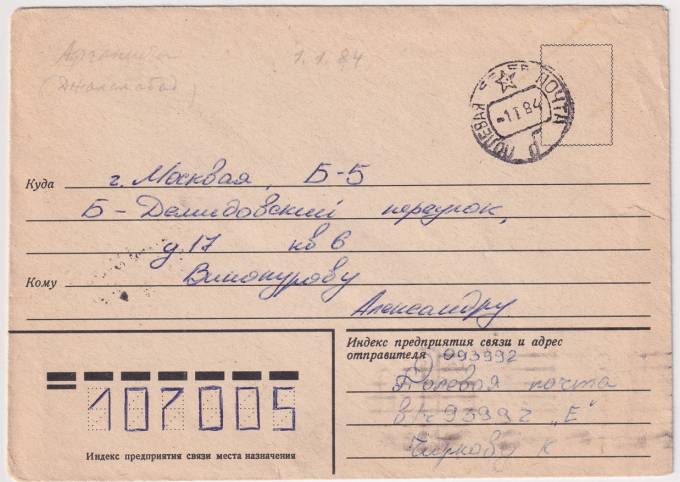 Афганистан 1.1.84
(Джалалабад)
ПОЛЕВАЯ ПОЧТА
-1 I 84
Куда г. Москвая, Б-5
Б-Демидовский переулок,
д 17 кв 6
Кому Винокурову
Александру
Индекс предприятия связи и адрес
отправителя 093992
Полевая почта
в/ч 93992 „Е"
к
107005
Индекс предприятия связи места назначения